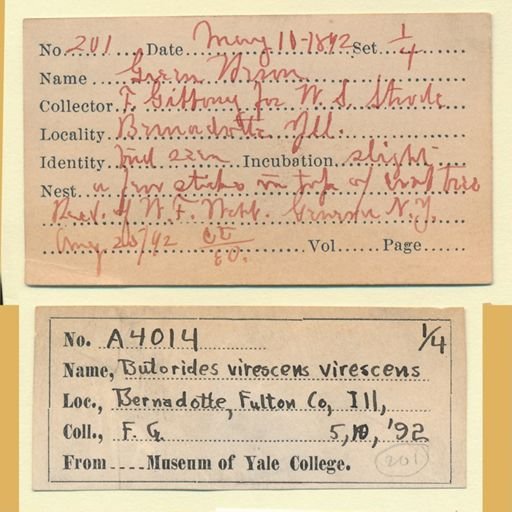 No. 201 Date May 10-1892 Set 1/4
Name Green Heron
Collector F. Gibbony for W. S. Strode
Locality Bernadotte Ill.
Identity bird seen Incubation slight
Nest a few sticks in top of crab tree
Recd. of W. F. Webb. Geneva N.Y.
Aug 25/92 Vol Page
No. A4014 1/4
Name, Butorides virescens virescens
Loc., Bernadotte, Fulton Co, Ill,
Coll., F. G. 5, 10, '92
From Museum of Yale College. 201